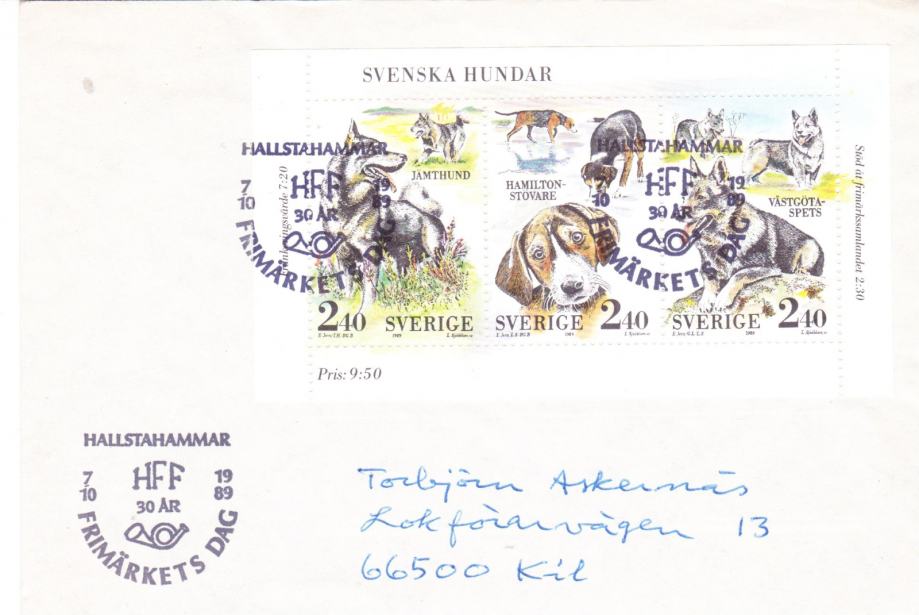 SVENSKA HUNDAR
JÄMTHUND
HAMILTON-
STÖVARE
VÄSTGÖTA-
SPETS
2.40 SVERIGE
SVERIGE 2.40
SVERIGE 2.40
1989
1989
1989
Pris: 9:50
7:20
Stöd åt frimärkssamlandet 2:30
HALLSTAHAMMAR
7/10 HFF 1989
30 ÅR
FRIMÄRKETS DAG
HALLSTAHAMMAR
7/10 HFF 1989
30 ÅR
FRIMÄRKETS DAG
HALLSTAHAMMAR
7/10 HFF 1989
30 ÅR
FRIMÄRKETS DAG
Torbjörn Askernäs
Lokförarvägen 13
66500 Kil